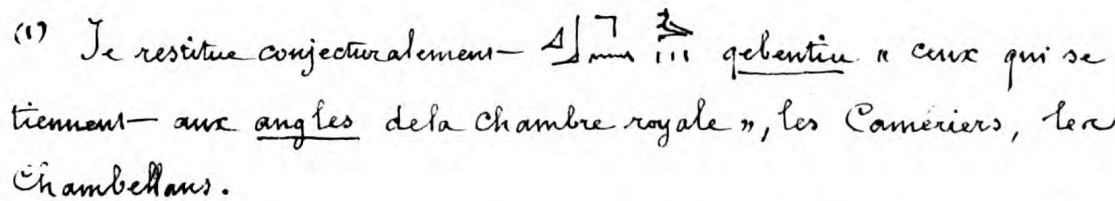 (1) Je restitue conjecturalement qebentiu « ceux qui se
tiennent aux angles de la Chambre royale », les Camériers, les
Chambellans.